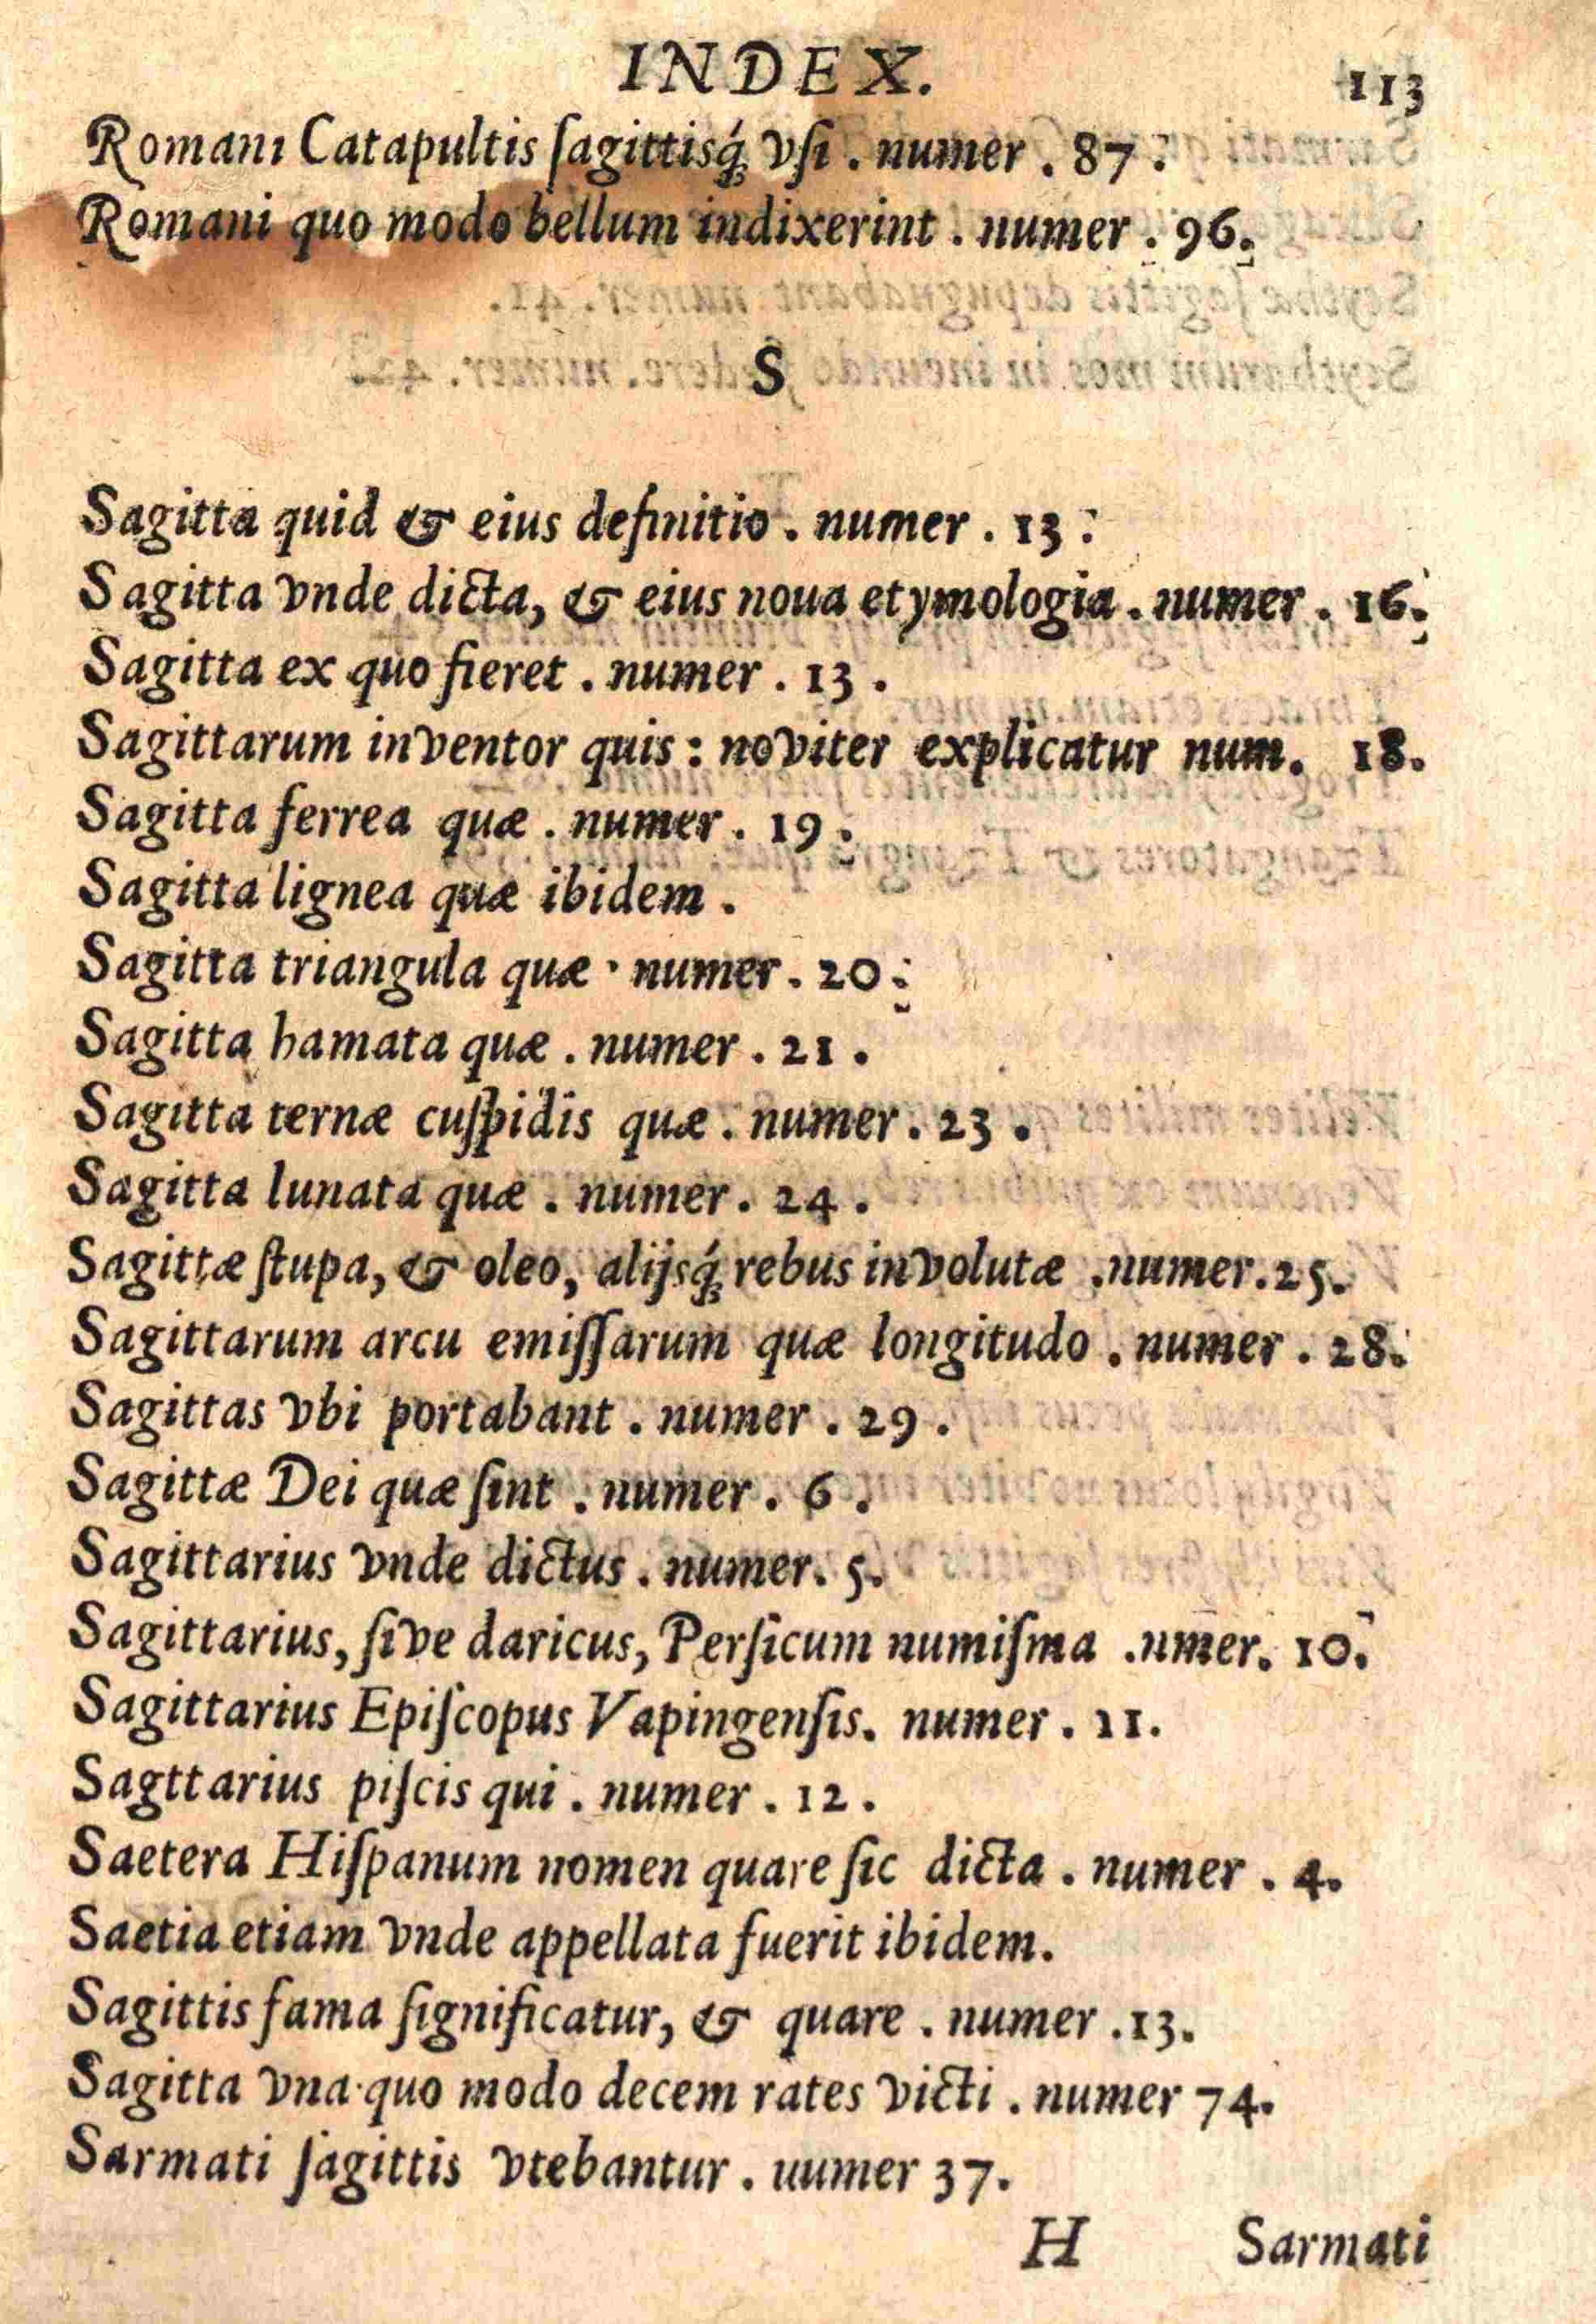 INDEX. 113
Romani Catapultis ſagittisq́; vſi . numer . 87 .
Romani quo modo bellum indixerint . numer . 96.
S
Sagitta quid & eius definitio . numer . 13 .
Sagitta vnde dicta, & eius noua etymologia . numer . 16.
Sagitta ex quo fieret . numer . 13 .
Sagittarum inventor quis : noviter explicatur num. 18.
Sagitta ferrea quæ . numer . 19 .
Sagitta lignea quæ ibidem .
Sagitta triangula quæ . numer . 20 .
Sagitta hamata quæ . numer . 21 .
Sagitta ternæ cuſpidis quæ . numer . 23 .
Sagitta lunata quæ . numer . 24 .
Sagittæ ſtupa, & oleo, alijsq́; rebus involutæ .numer.25.
Sagittarum arcu emiſſarum quæ longitudo . numer . 28.
Sagittas vbi portabant . numer . 29 .
Sagittæ Dei quæ ſint . numer . 6 .
Sagittarius vnde dictus . numer. 5.
Sagittarius, ſive daricus, Perſicum numiſma .nm̄er. 10.
Sagittarius Epiſcopus Vapingenſis. numer . 11.
Sagttarius piſcis qui . numer . 12 .
Saetera Hiſpanum nomen quare ſic dicta . numer . 4.
Saetia etiam vnde appellata fuerit ibidem.
Sagittis fama ſignificatur, & quare . numer .13.
Sagitta vna quo modo decem rates victi . numer 74.
Sarmati ſagittis vtebantur . uumer 37.
H Sarmati